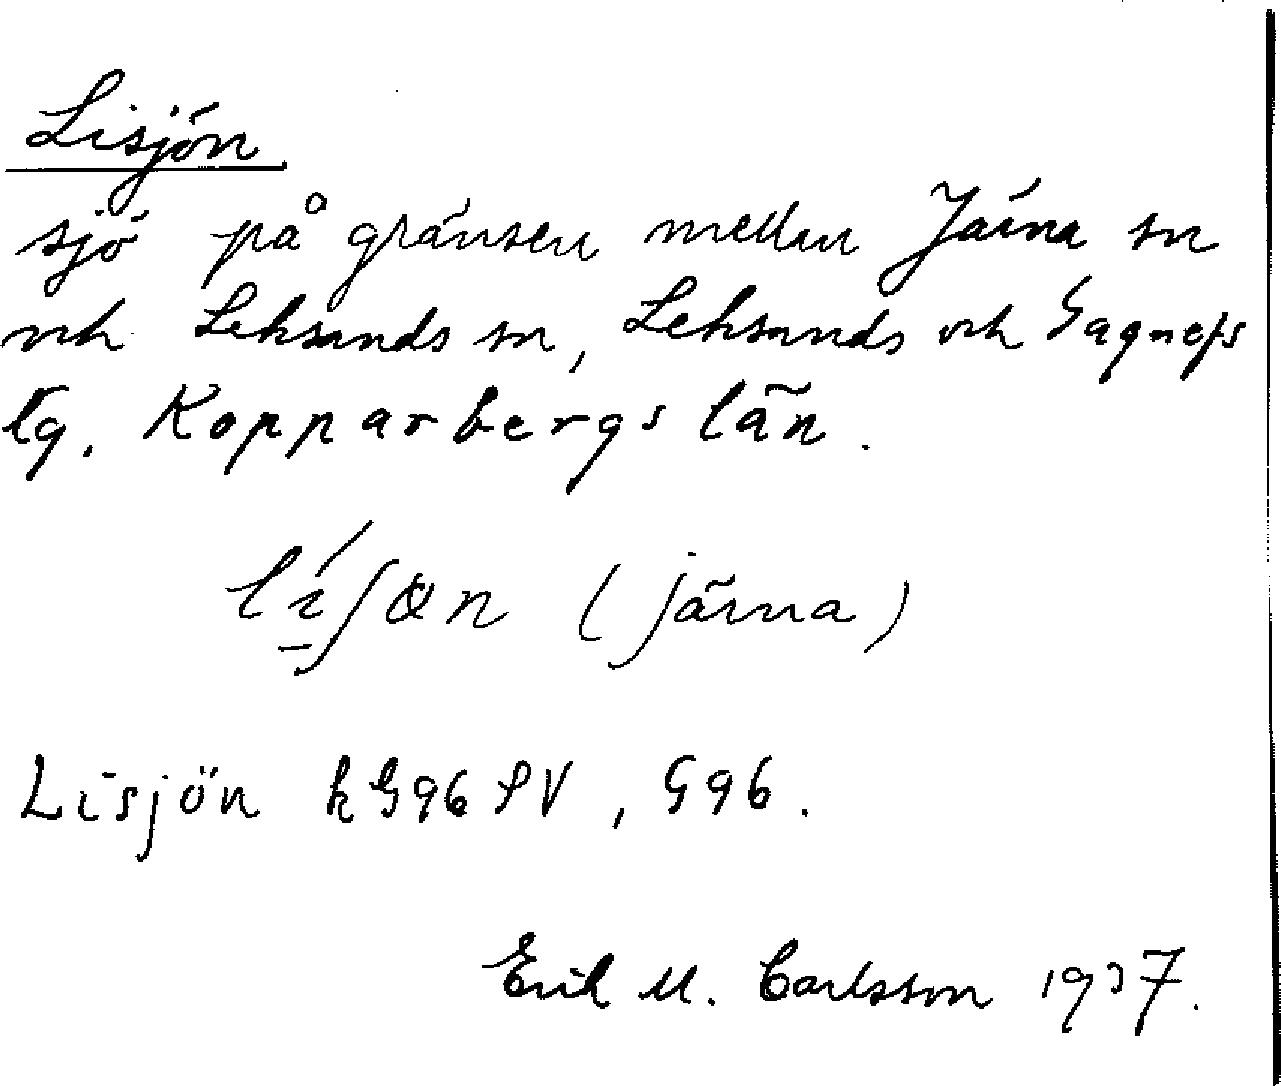 Lisjön
sjö på gränsen mellan Järna sn
och Leksands sn, Leksands och Gagnefs
tg. Kopparbergs län.
(Järna)
Lisjön kG96 SV, G96.
Erik M. Carlsson 1937.